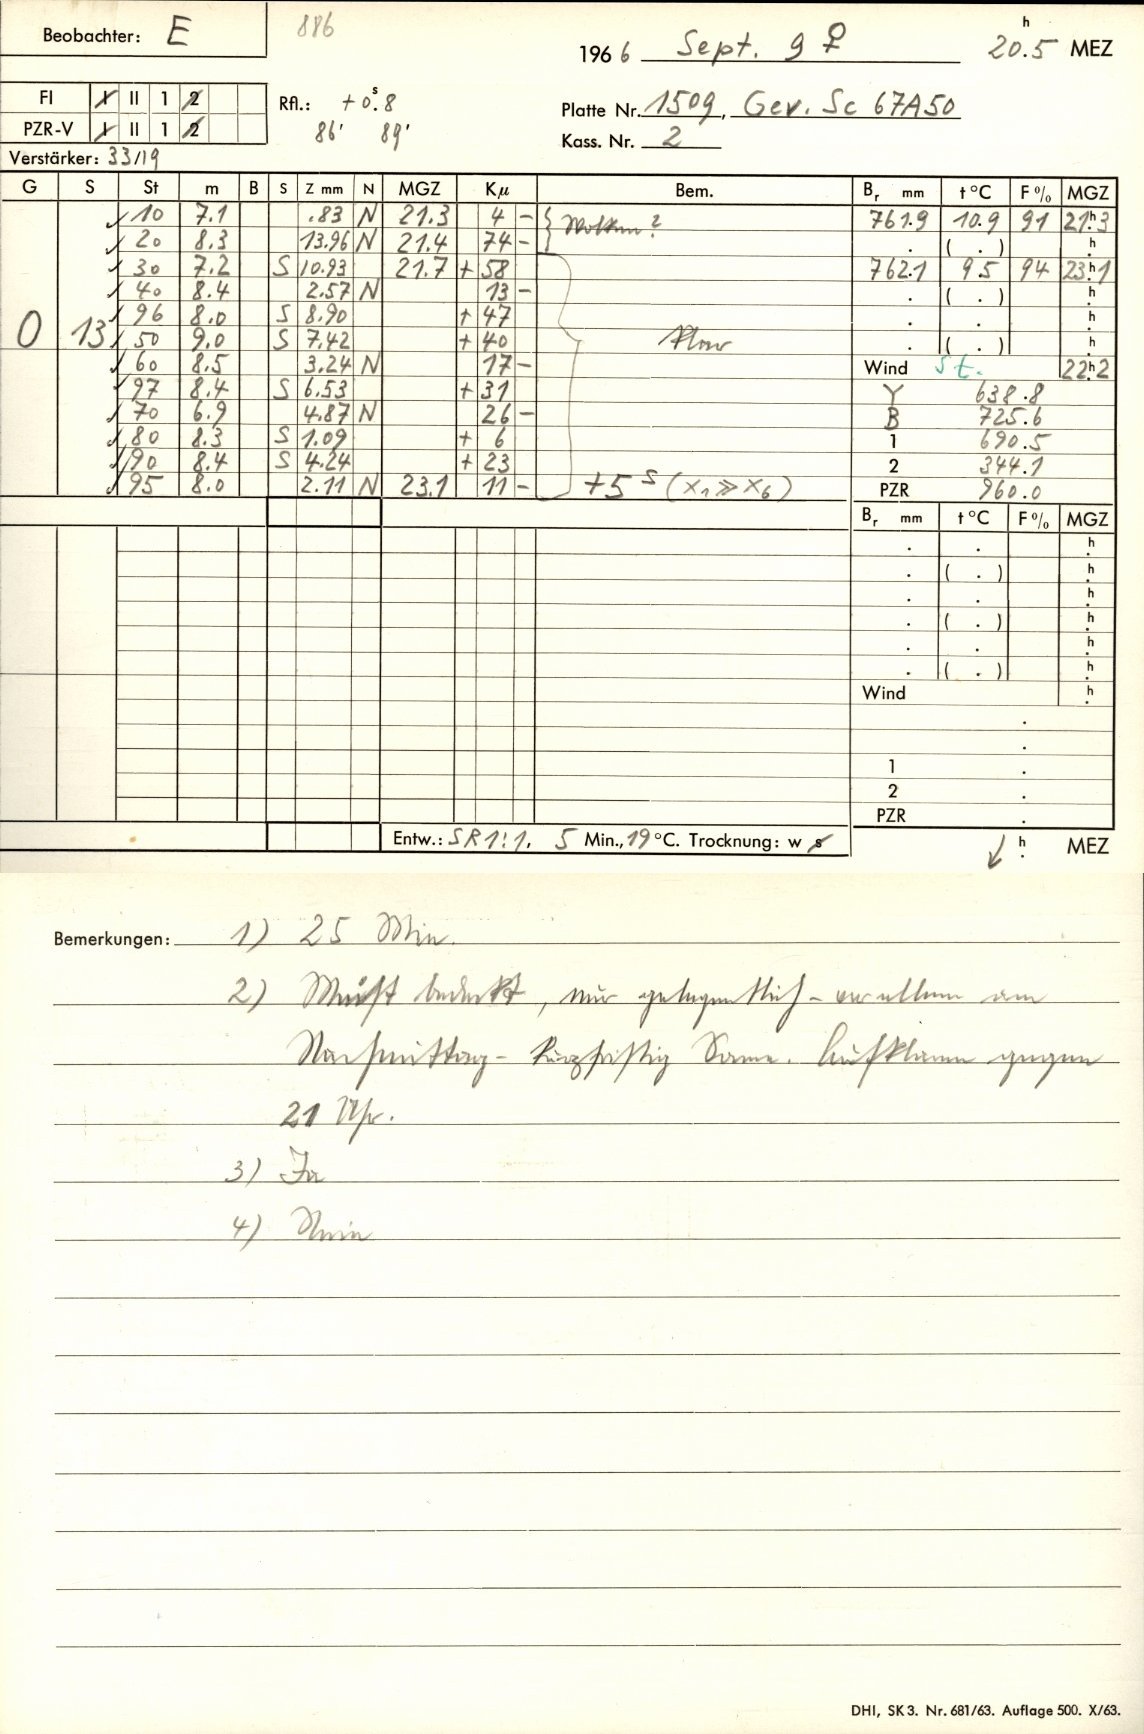 Beobachter: E
886
1966 Sept. 9 ♀ 20.5 h MEZ
FI I II 1 2
PZR-V I II 1 2
Rfl.: +0.s8
86' 89'
Platte Nr. 1509, Gev. Sc 67A50
Kass. Nr. 2
Verstärker: 33/19
G S St m B S Z mm N MGZ Kμ Bem. Br mm t °C F % MGZ
✓ 10 7.1 .83 N 21.3 4 - Wolken? 761.9 10.9 91 21h.3
✓ 20 8.3 13.96 N 21.4 74 - . ( . ) h
✓ 30 7.2 S 10.93 21.7 + 58 762.1 9.5 94 23h.1
✓ 40 8.4 2.57 N 13 - . ( . ) h.
✓ 96 8.0 S 8.90 + 47 . . h.
0 13 ✓ 50 9.0 S 7.42 + 40 klar . ( . ) h.
✓ 60 8.5 3.24 N 17 - Wind st. 22h.2
✓ 97 8.4 S 6.53 + 31 Y 638.8
✓ 70 6.9 4.87 N 26 - B 725.6
✓ 80 8.3 S 1.09 + 6 1 690.5
✓ 90 8.4 S 4.24 + 23 2 344.1
✓ 95 8.0 2.11 N 23.1 11 - +5 s (x1 ≫ x6) PZR 960.0
Br mm t °C F % MGZ
. . h.
. ( . ) h.
. . h.
. ( . ) h.
. . h.
. ( . ) h.
Wind h.
.
.
1 .
2 .
PZR .
Entw.: SR 1:1, 5 Min., 19 °C. Trocknung: w s
↙ h. MEZ
Bemerkungen: 1) 25 Min.
2) Meist bedeckt, nur gelegentlich - vor allem am
Nachmittag - kurzfristig Sonne. Aufklaren gegen
21 Uhr.
3) Ja
4) Nein
DHI, SK 3. Nr. 681/63. Auflage 500. X/63.